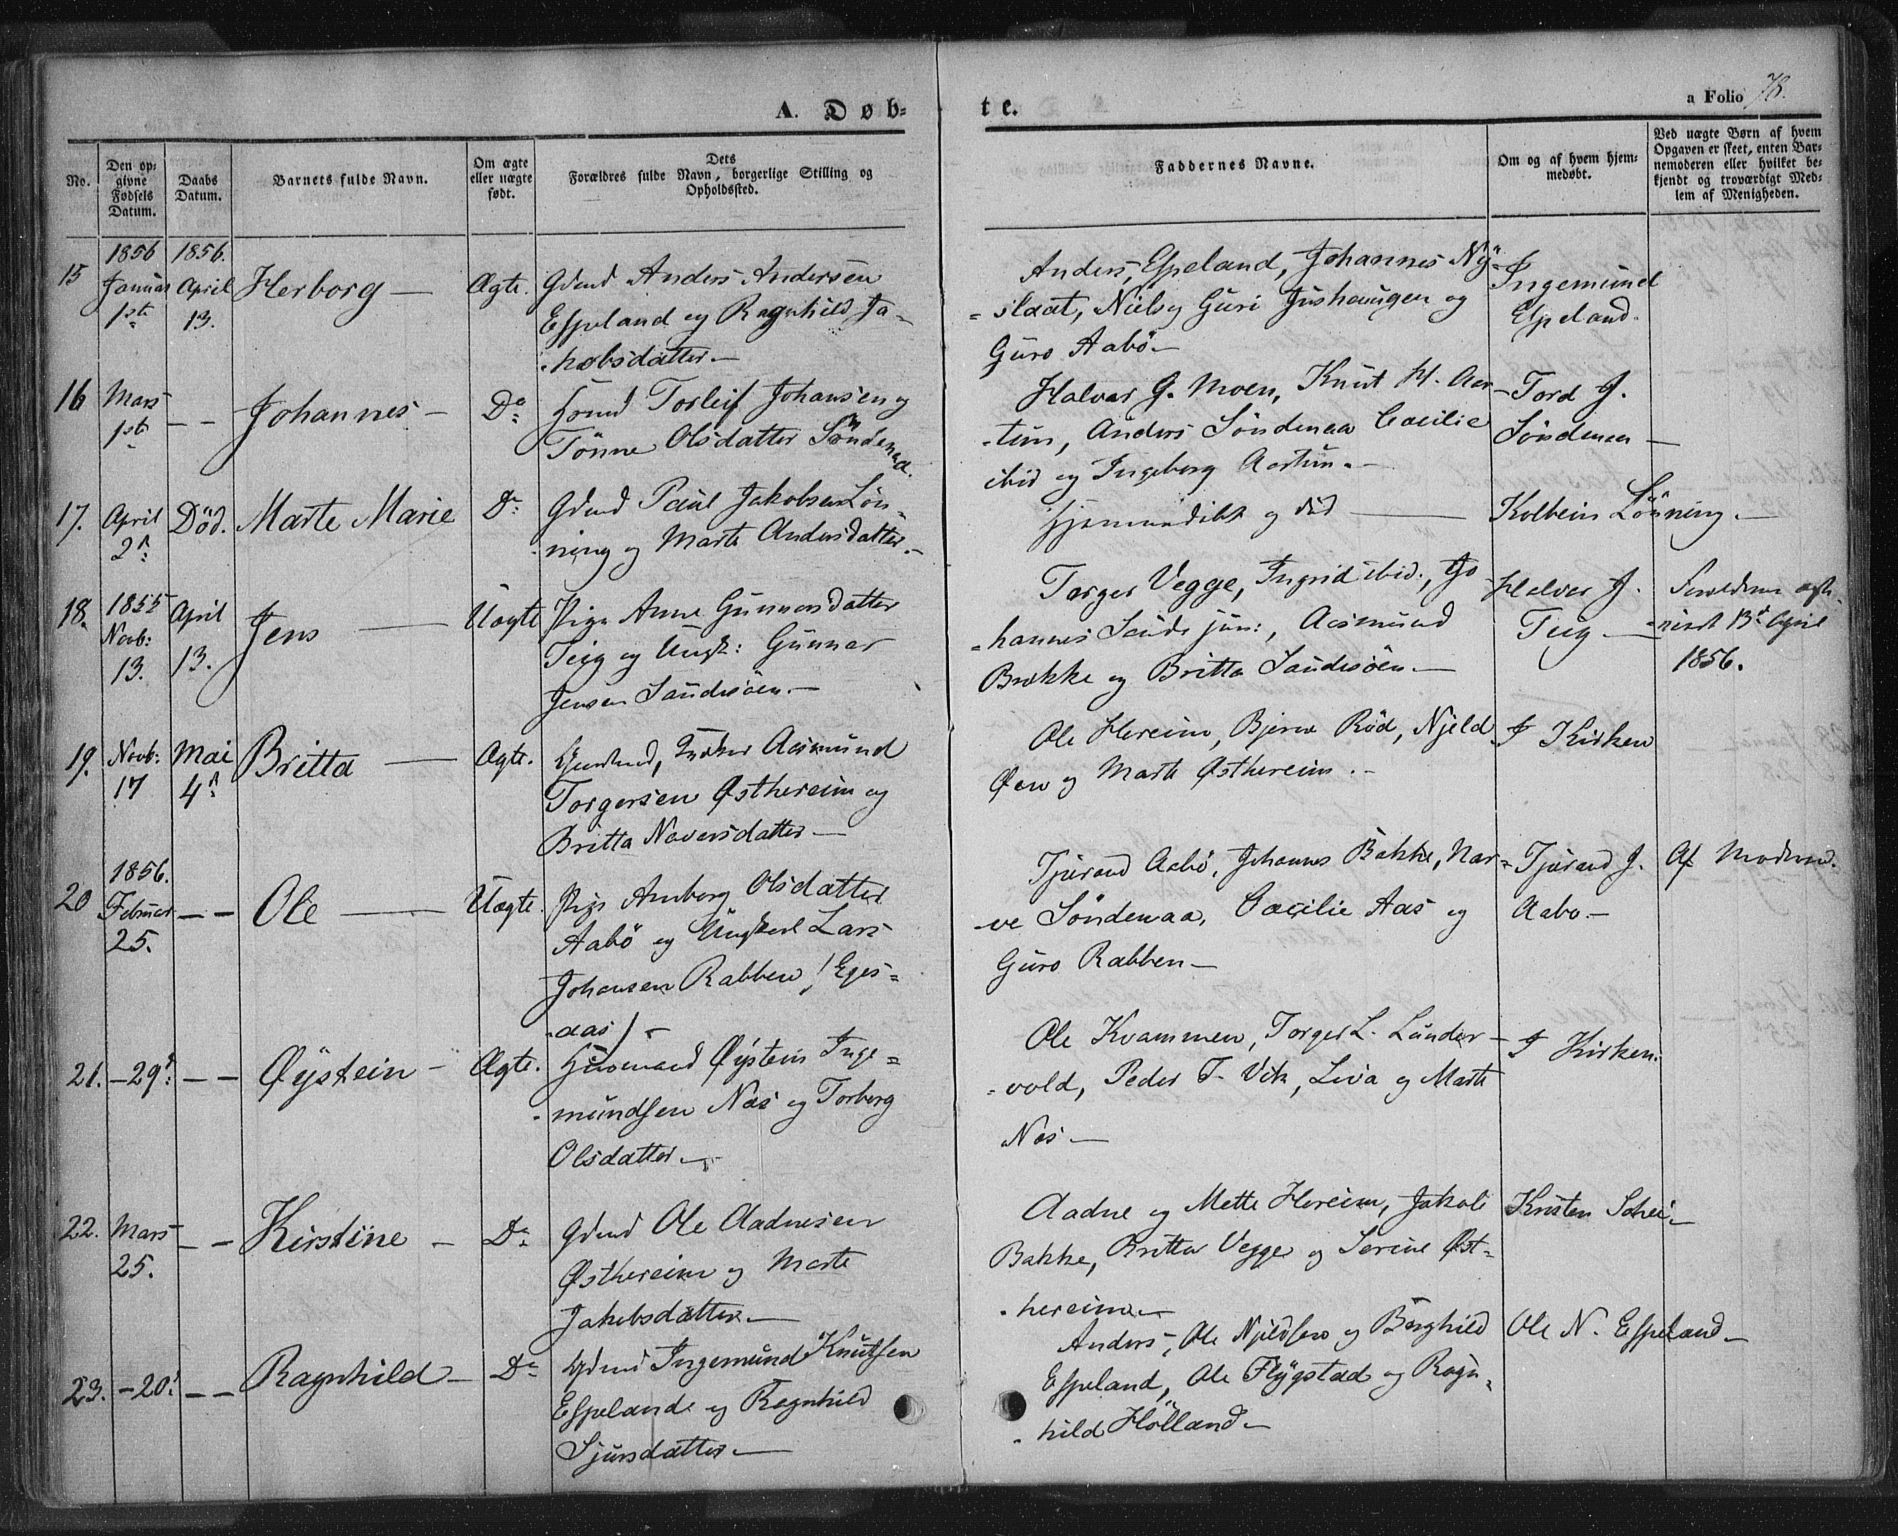 A. Døb-
te.
a Folio 78.
No.
Den op-
givne
Fødsels
Datum.
Daabs
Datum.
Barnets fulde Navn.
Om ægte
eller uægte
født.
Dets
Forældres fulde Navn, borgerlige Stilling og
Opholdssted.
Faddernes Navne.
Om og af hvem hjem-
medøbt.
Ved uægte Børn af hvem
Opgaven er skeet, enten Bar-
nemoderen eller hvilket be-
kjendt og troværdigt Med-
lem af Menigheden.
15
1856
Januar
1ste
1856.
April
13.
Herborg —
Ægte.
Gdmd Anders Andersen
Espeland og Ragnhild Ja-
kobsdatter. —
Anders Espeland, Johannes Ny-
slaat, Niels og Guri Jushaugen og
Guro Aabö —
Ingemund
Espeland.
16
Mars
1ste
— —
Johannes —
Do
Hmd Torleif Johansen og
Tönne Olsdatter Söndenaa.
Halvar G. Moen, Knut H. Aar-
tun, Anders Söndenaa Cæcilie
ibid og Ingeborg Aartun. —
Tord J.
Söndenaa —
17.
April
2d
Död.
Marte Marie
Do
Gdmd Paul Jakobsen Lön-
ning og Marte Andersdatter. —
Hjemmedöbt og död ———
Kolbein Lönning. —
18.
1855
Novb:
13.
April
13.
Jens ——
Uægte
Pige Anne Gunnarsdatter
Teig og Ungk: Gunnar
Jensen Sandesöen. —
Torger Vegge, Ingrid ibid., Jo-
hannes Sande jun:, Aasmund
Brekke og Britta Sandesöen. —
Halvor J.
Teig. —
Forældrene ægte-
viedt 13d April
1856.
19.
Novb:
17
Mai
4d
Britta ——
Ægte.
Aasmund
Torgersen Østhereim og
Britta Naversdatter —
Ole Hereim, Bjerne Röd, Njeld
Øen og Marte Østhereim. —
I Kirken
20
1856.
Februar
25.
— —
Ole ———
Uægte.
Pige Anborg Olsdatter
Aabö og Ungkarl Lars
Johansen Rabben, (Eges-
aas) —
Tjurand Aabö, Johannes Bakke, Nar-
ve Söndenaa, Cæcilie Aas og
Guro Rabben —
Tjurand J.
Aabo —
Af Moderen.
21.
— 29d:
— —
Øystein —
Ægte.
Huusmand Øystein Inge-
mundsen Næs og Torborg
Olsdatter. —
Ole Kvammen, Torger L. Lunder-
vold, Peder T. Vik, Liva og Marte
Næs —
I Kirken.
22.
Mars
25.
— —
Kirstine —
Do
Gdmd Ole Aadnesen
Østhereim og Marte
Jakobsdatter —
Aadne og Mette Hereim, Jakob
Bakke, Britta Vegge og Serine Øst-
hereim. —
Kristen Schei —
23.
— 20d
— —
Ragnhild —
Do
Gdmd Ingemund Knutsen
Espeland og Ragnhild
Sjursdatter —
Anders, Ole Njeldsen og Börghild
Espeland, Ole Flygstad og Ragn-
hild Hölland —
Ole N. Espeland —